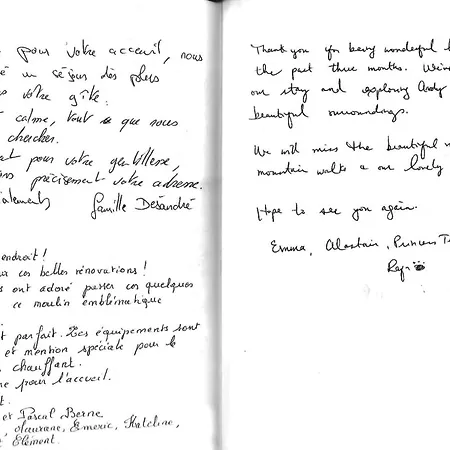 pour votre acceuil, nous
un séjour des plus
votre gîte.
calme, tout ce que nous
chercher.
pour votre gentillesse,
précisement votre adresse.
famille Desandré
endroit!
ces belles rénovations!
ont adoré passer ces quelques
ce moulin emblématique
parfait. Les équipements sont
et mention spéciale pour le
chauffant.
pour l'accueil.
et Pascal Berne
Laurane, Emeric, Kateline,
Clément.
Thank you for being wonderful
the past three months. We've
our stay and exploring
beautiful surroundings.
We will miss the beautiful
mountain walks & our lovely
Hope to see you again.
Emma, Alastair, Princess